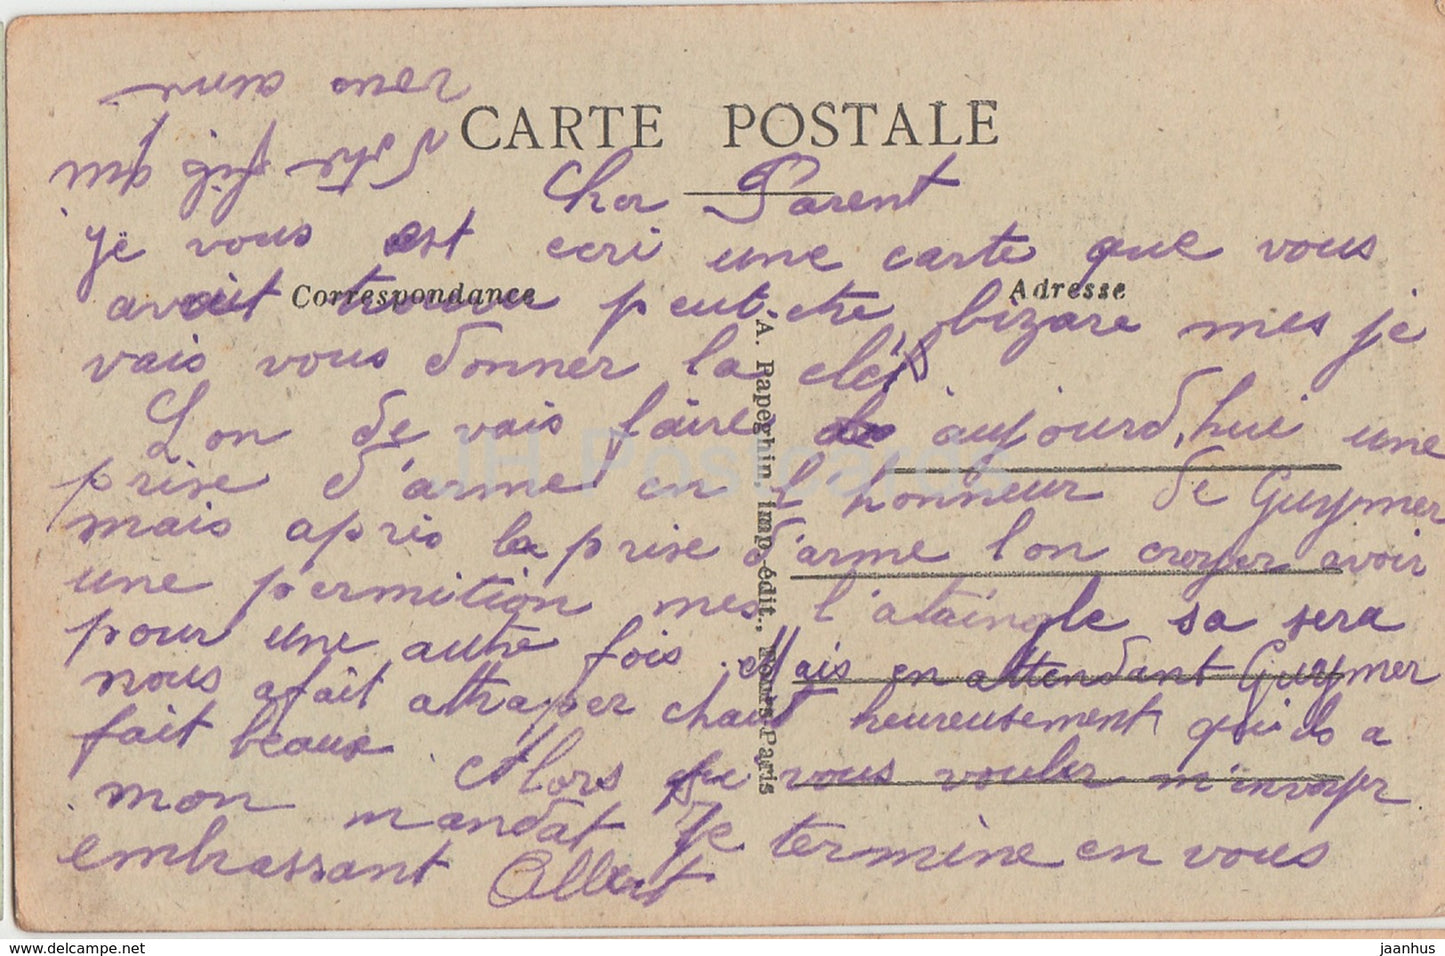 CARTE POSTALE
Cher Parent
je vous est ecri une carte que vous
avait trouver peut-etre bizare mes je
vais vous donner la clef
Correspondance
Adresse
L'on de vais faire aujourd,hui une
prise d'arme en l'honneur de Guymer
mais après la prise d'arme l'on croyer avoir
une permition mes l'ataingle sa sera
pour une autre fois. Mais en attendant Guymer
nous afait attraper chaut heureusement qu'ils a
fait beaux. Alors si vous vouler m'invoyer
mon mandat Je termine en vous
embrassant Albert
Votre fils qui
vous aime
A. Papeghin, imp.-édit., Tours-Paris
JH Postcards
www.delcampe.net
jaanhus